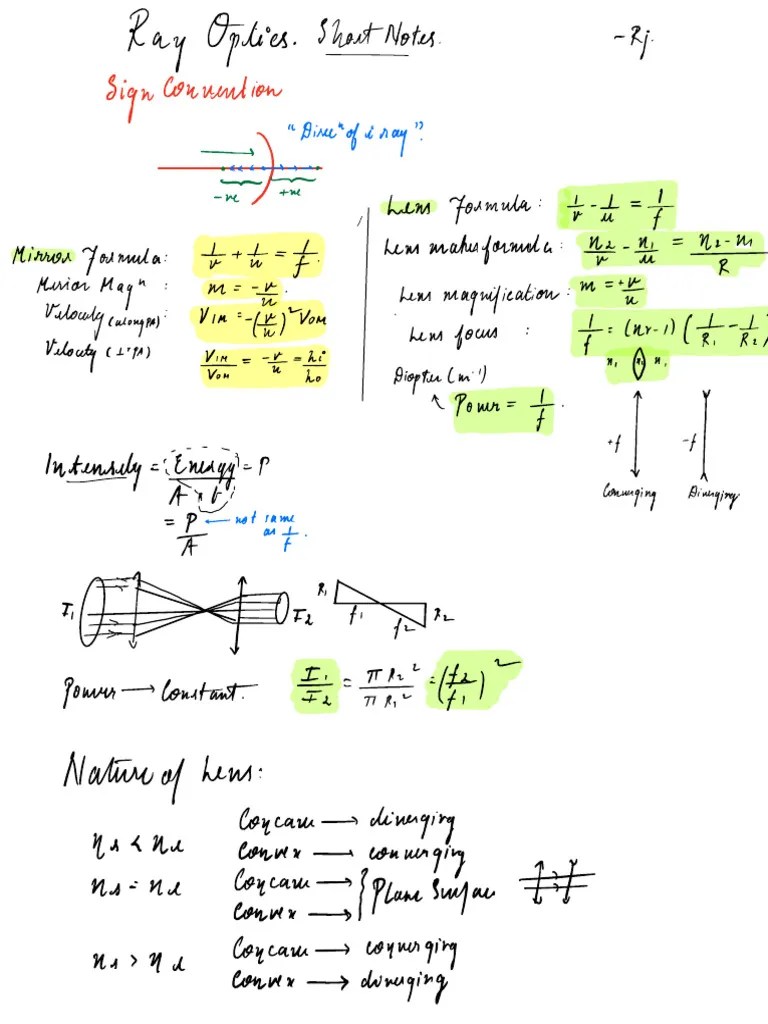 Ray Optics. Short Notes. -Rj.
Sign Convention
"Direcⁿ of i ray".
-ve +ve
Mirror Formula: 1/v + 1/u = 1/f.
Mirror Magⁿ : m = -v/u
Velocity (along PA): V_IM = -(v/u)² V_OM
Velocity (⊥ʳ PA) V_IM/V_OM = -v/u = hi/ho
Lens Formula: 1/v - 1/u = 1/f
Lens makers formula: n₂/v - n₁/u = n₂-n₁/R
Lens magnification: m = +v/u
Lens focus : 1/f = (nr-1) (1/R₁ - 1/R₂)
n₁ n₂ n₁
Diopter (m⁻¹)
Power = 1/f.
+f -f
Converging Diverging
Intensity = Energy/A × t = P
= P/A ← not same as 1/f.
I₁ I₂ R₁ f₁ f₂ R₂
Power → Constant. I₁/I₂ = πR₂²/πR₁² = (f₂/f₁)²
Nature of Lens:
ns < nl Concave → diverging
Convex → converging
ns = nl Concave → } Plane Surface
Convex →
ns > nl Concave → converging
Convex → diverging